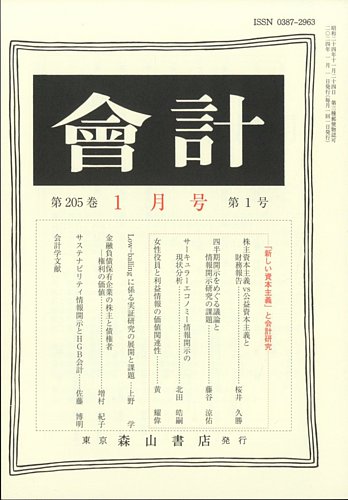 ISSN 0387-2963
昭和二十四年十一月二十四日 第三種郵便物認可
二〇二四年一月一日発行(毎月一回一日発行)
會計
第205巻 1月号 第1号
『新しい資本主義』と会計研究
株主資本主義vs公益資本主義と
財務報告……桜井 久勝
四半期開示をめぐる議論と
情報開示研究の課題……藤谷 涼佑
サーキュラーエコノミー情報開示の
現状分析……北田 皓嗣
女性役員と利益情報の価値関連性……黄 耀偉
Low-ballingに係る実証研究の展開と課題……上野 学
金融負債保有企業の株主と債権者
―権利の価値……増村 紀子
サステナビリティ情報開示とHGB会計……佐藤 博明
会計学文献
東京 森山書店 発行